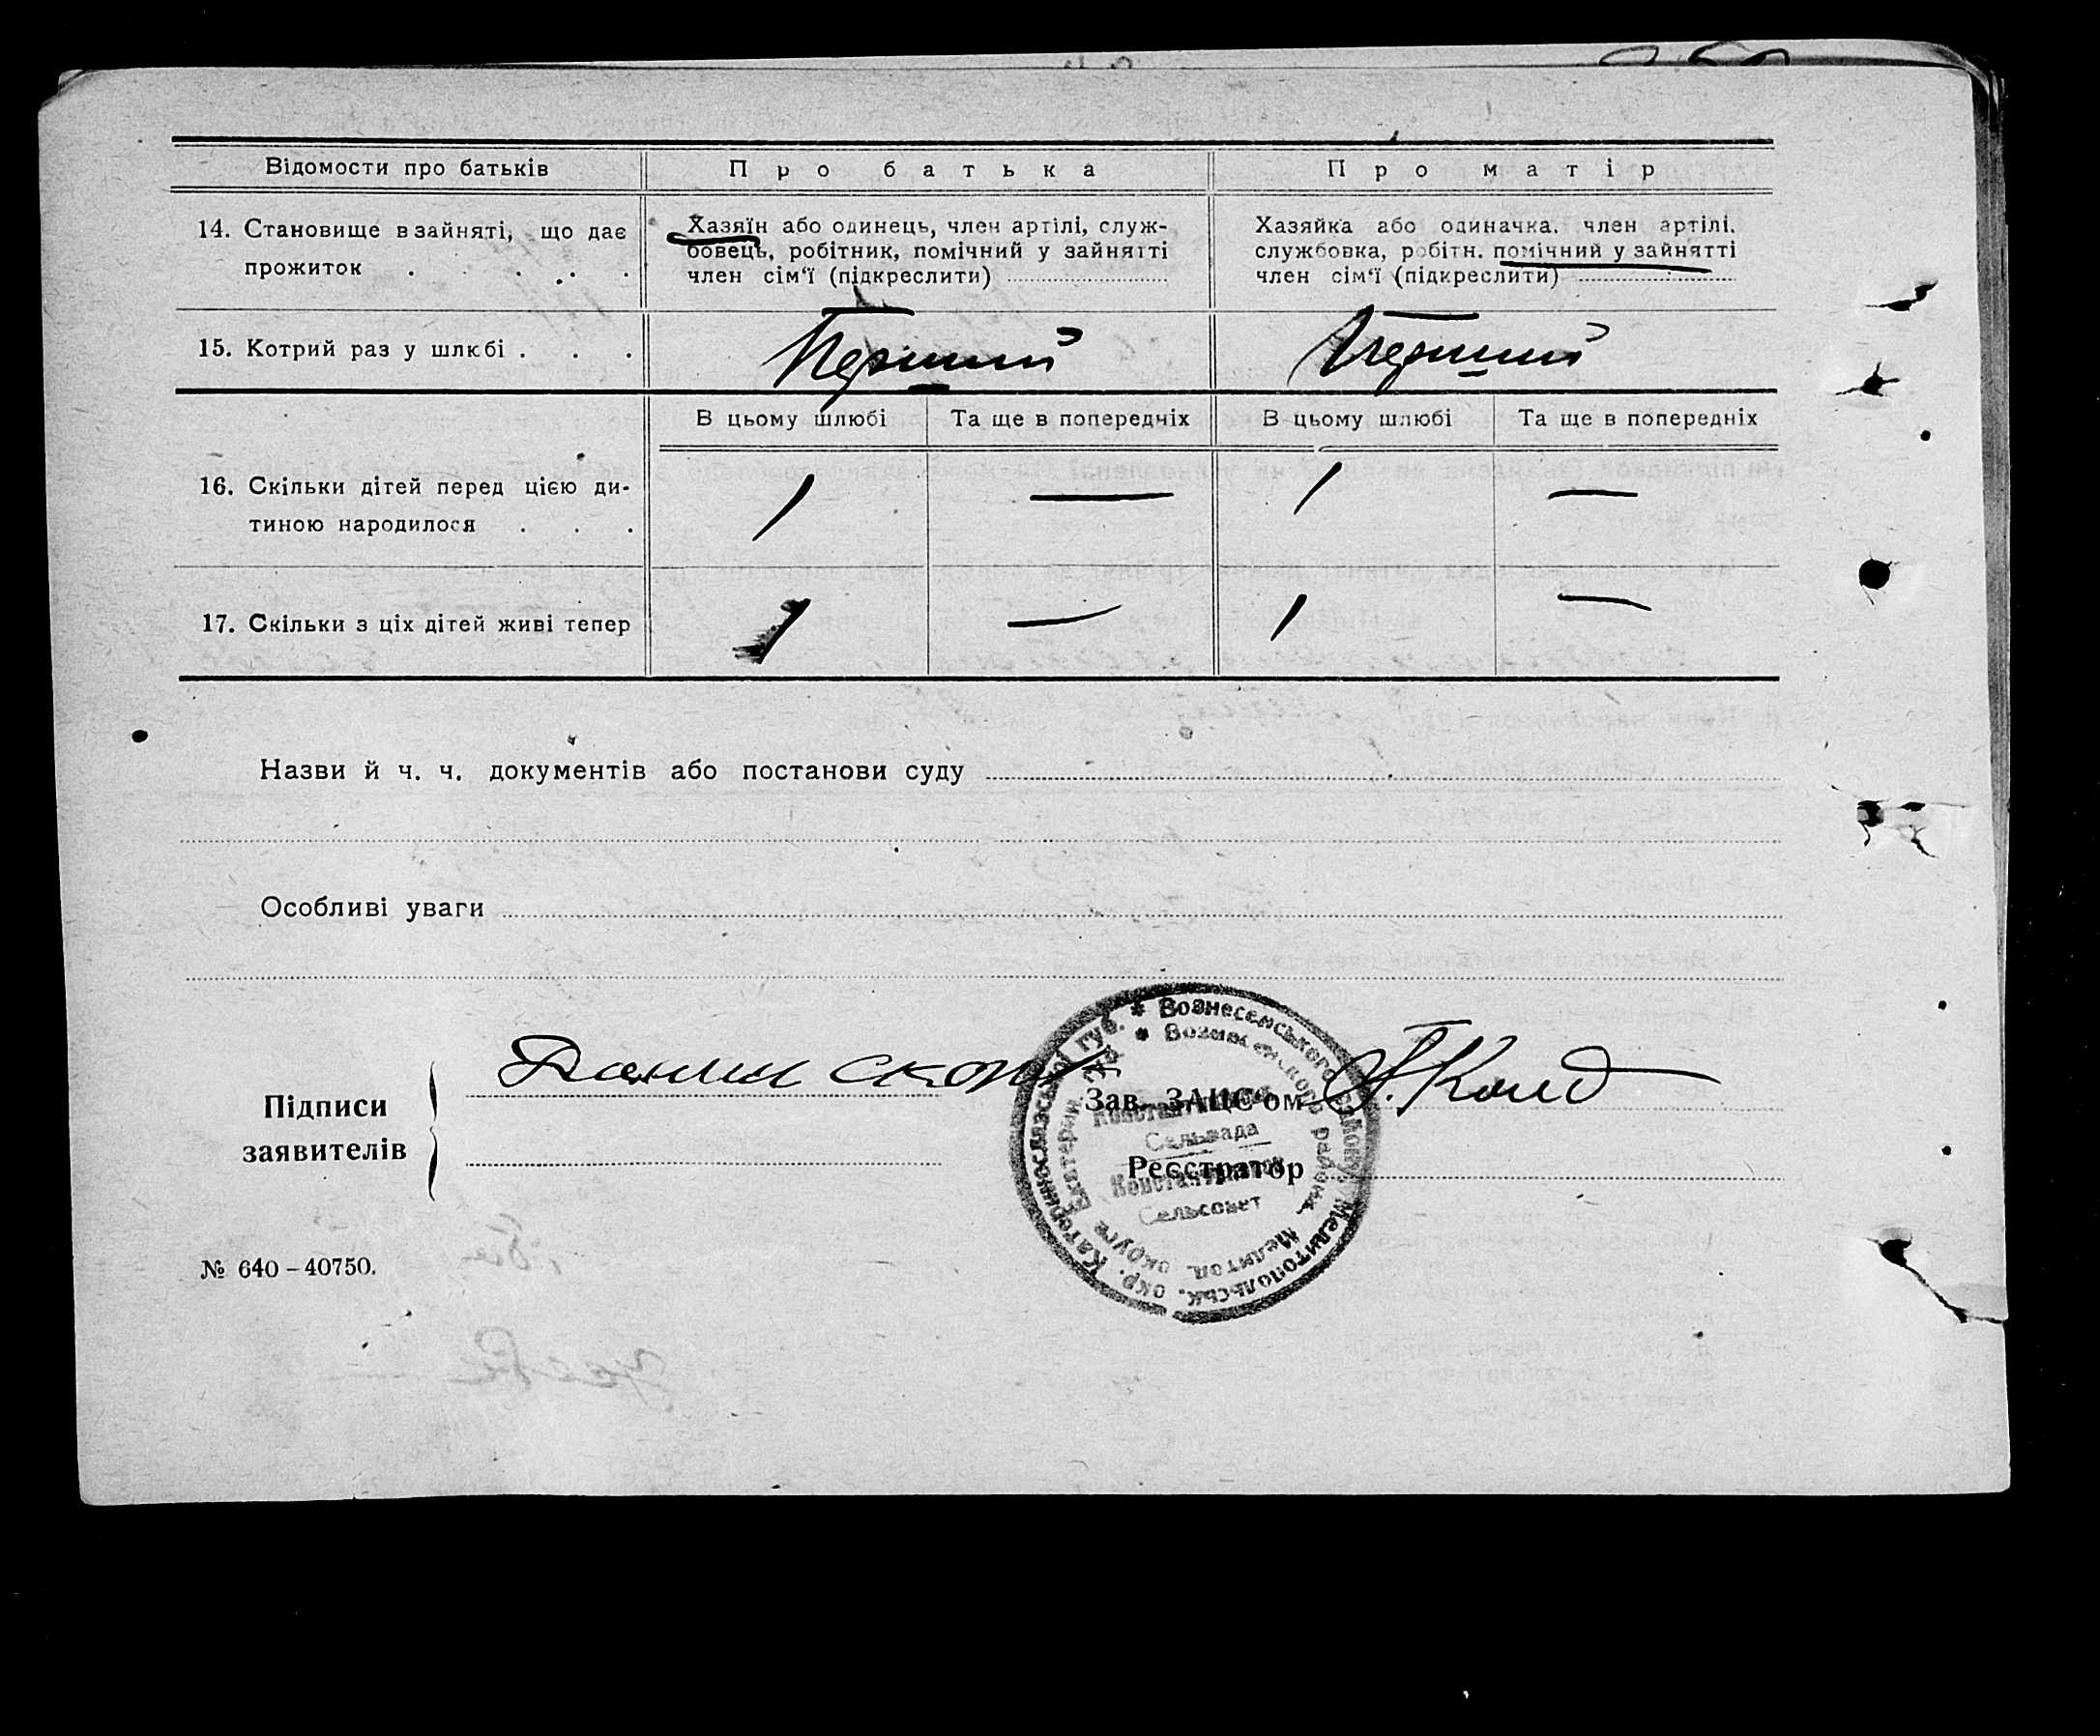 Відомости про батьків
Про батька
Про матір
14. Становище в зайняті, що дає
прожиток . . . .
Хазяїн або одинець, член артілі, служ-
бовець, робітник, помічний у зайнятті
член сім'ї (підкреслити)
Хазяйка або одиначка. член артілі.
службовка, робітн. помічний у зайнятті
член сім'ї (підкреслити)
15. Котрий раз у шлюбі . . .
Перший
Перший
В цьому шлюбі
Та ще в попередніх
В цьому шлюбі
Та ще в попередніх
16. Скільки дітей перед цією ди-
тиною народилося . . .
1
—
1
—
17. Скільки з ціх дітей живі тепер
1
—
1
—
Назви й ч. ч. документів або постанови суду
Особливі уваги
Підписи
заявителів
Данил
Зав. ЗАЦС'ом
Реєстратор
* Вознесенського району Мелитопольськ. окр. Катеринославської Губ.
* Вознесенского района Мелитоп. округе Екатерин. губ.
Сельрада
Сельсовет
№ 640 – 40750.